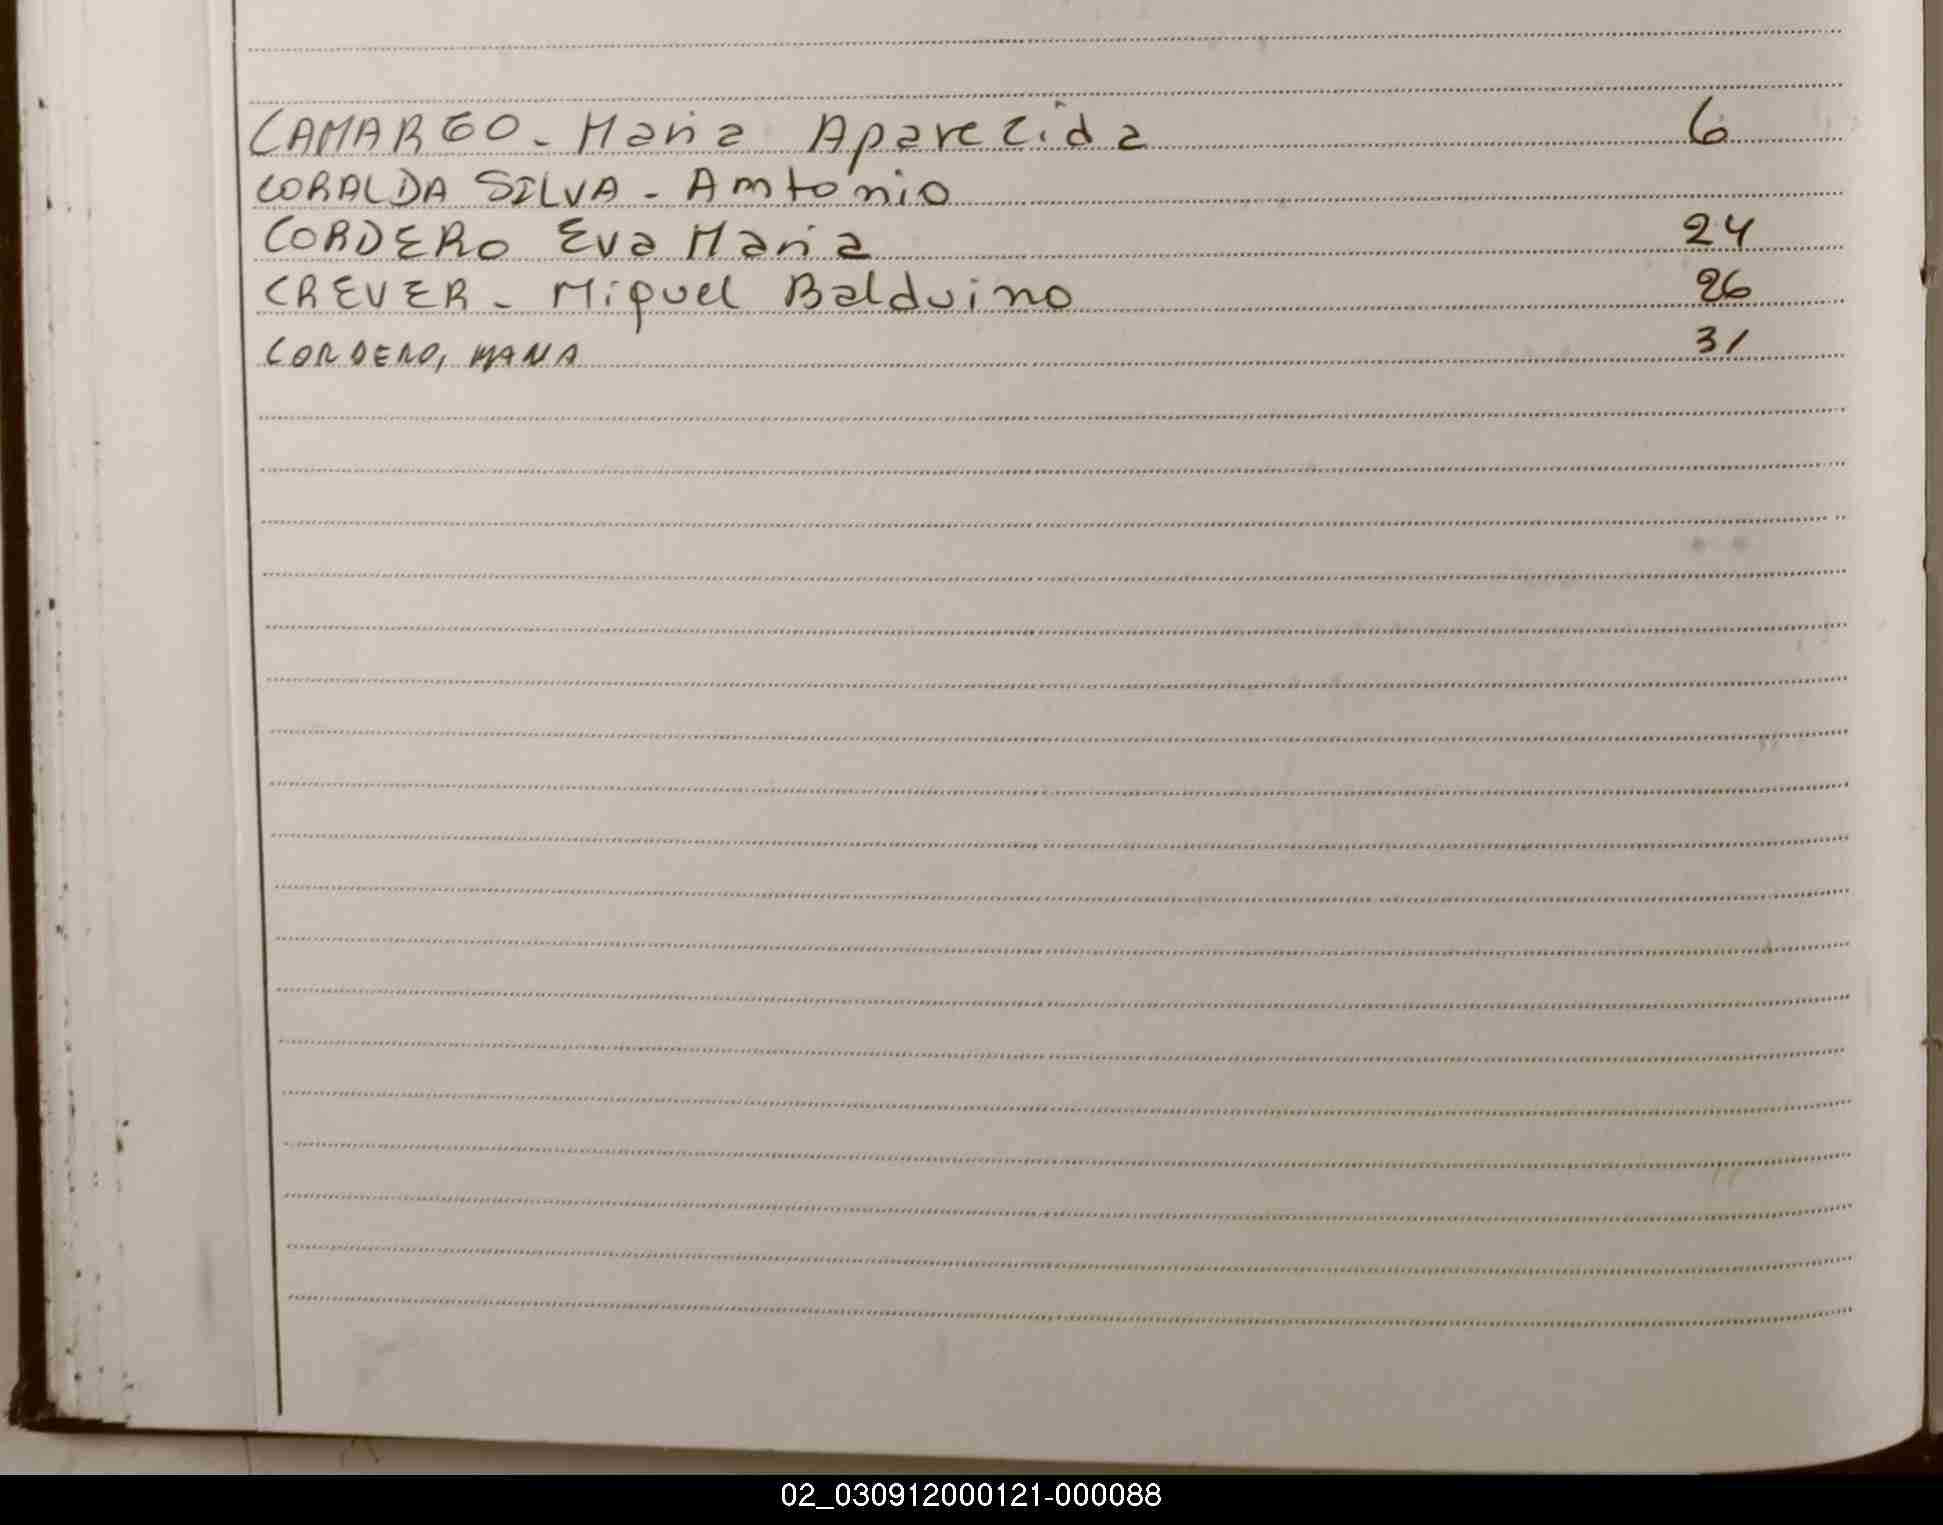 CAMARGO - Maria Aparecida 6
CORALDA SILVA - Amtonio
CORDERO Eva Maria 24
CREVER - Miguel Balduino 26
CORDERO, MARIA 31
02_030912000121-000088